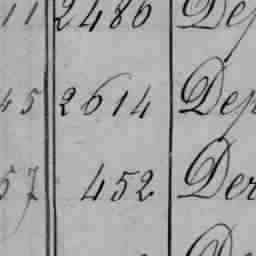 11 2486 Dep
45 2614 Dep
57 452 Der